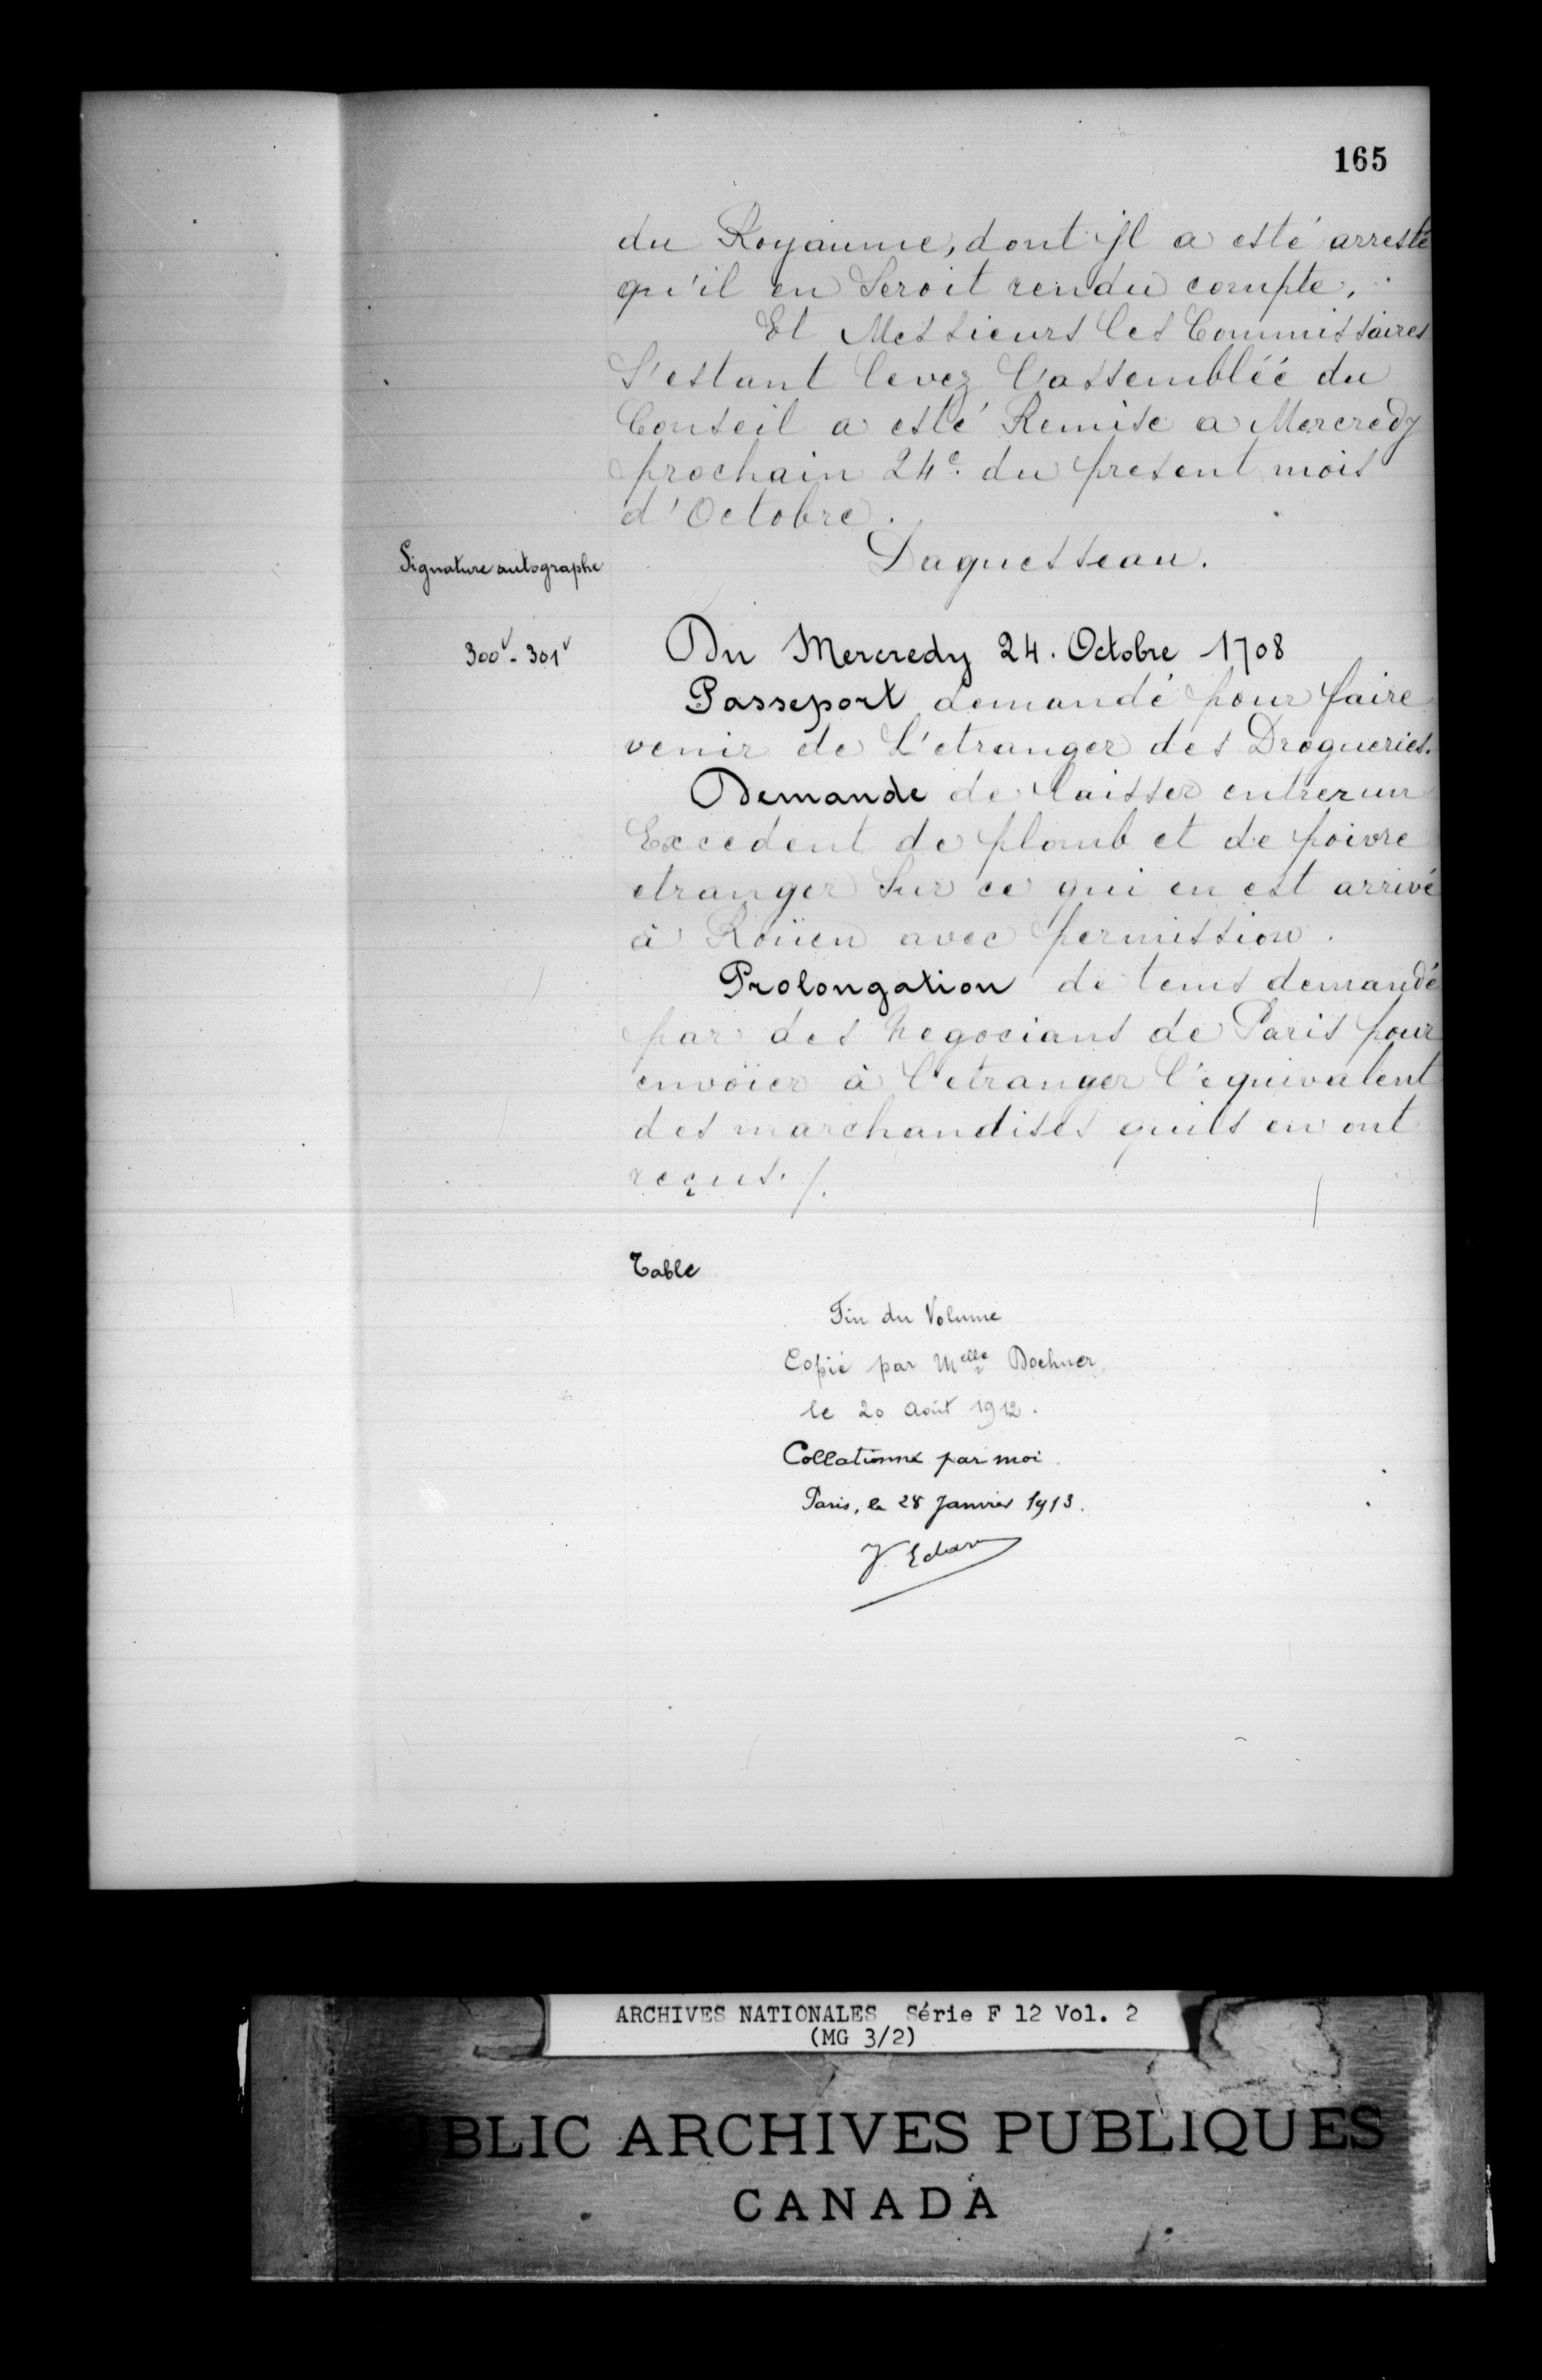 165
du Royaume, dont Jl a esté arresté
qu'il en Seroit rendu compte.
Et Messieurs les Commissaires
S'estant levez l'assembléé du
Conseil a esté Remise a Mercredy
prochain 24e. du present mois
d'Octobre.
Signature autographe
Daguesseau.
300v - 301v
Du Mercredy 24. Octobre 1708
Passeport demandé pour faire
venir de L'etranger des Drogueries.
Demande de laisser entrer un
Excedent de plomb et de poivre
etranger Sur ce qui en est arrivé
à Roüen avec permission.
Prolongation de tems demandé
par des Negocians de Paris pour
envoïer à l'etranger l'equivalent
des marchandises quils en ont
reçus ./.
Table
Fin du Volume
Copié par Melle Doehner
le 20 Août 1912.
Collationné par moi
Paris, le 28 Janvier 1913.
ARCHIVES NATIONALES Série F 12 Vol. 2
(MG 3/2)
PUBLIC ARCHIVES PUBLIQUES
CANADA